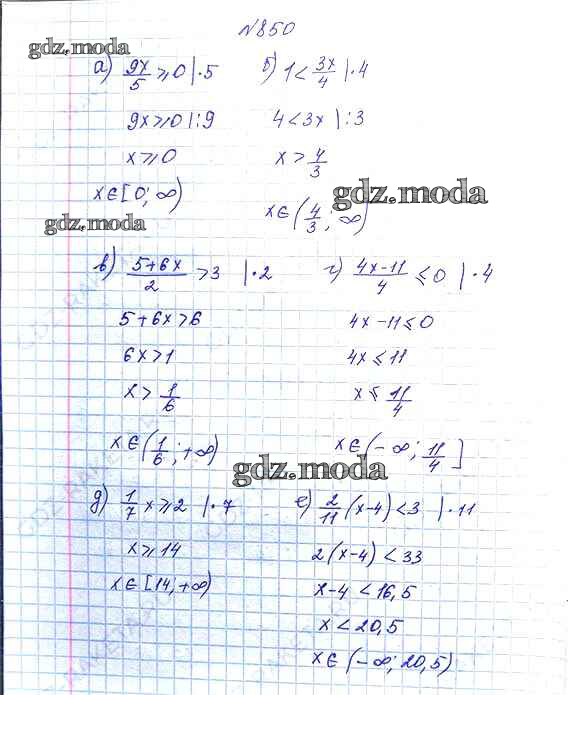 №850
gdz.moda
а) 9x/5 ≥ 0 |·5
9x ≥ 0 |:9
x ≥ 0
x ∈ [0; ∞)
gdz.moda
б) 1 < 3x/4 |·4
4 < 3x |:3
x > 4/3
gdz.moda
x ∈ (4/3; ∞)
в) (5+6x)/2 > 3 |·2
5+6x > 6
6x > 1
x > 1/6
x ∈ (1/6; +∞)
г) (4x-11)/4 ≤ 0 |·4
4x-11 ≤ 0
4x ≤ 11
x ≤ 11/4
x ∈ (-∞; 11/4]
gdz.moda
д) 1/7 x ≥ 2 |·7
x ≥ 14
x ∈ [14; +∞)
е) 2/11 (x-4) < 3 |·11
2(x-4) < 33
x-4 < 16,5
x < 20,5
x ∈ (-∞; 20,5)